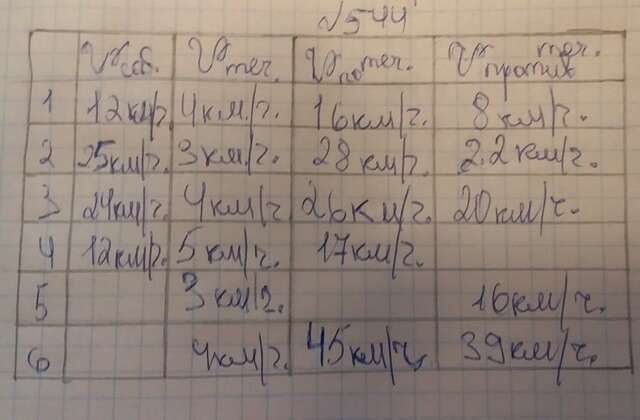 №544
Vсоб. Vтеч. Vпо теч. Vпротив теч.
1 12км/г 4км/г. 16км/г. 8км/г.
2 25км/г. 3км/г. 28км/г. 22км/г.
3 24км/г. 4км/г 26км/г. 20км/г.
4 12км/г. 5км/г. 17км/г.
5 3км/г. 16км/г.
6 4км/г. 45км/г. 39км/г.